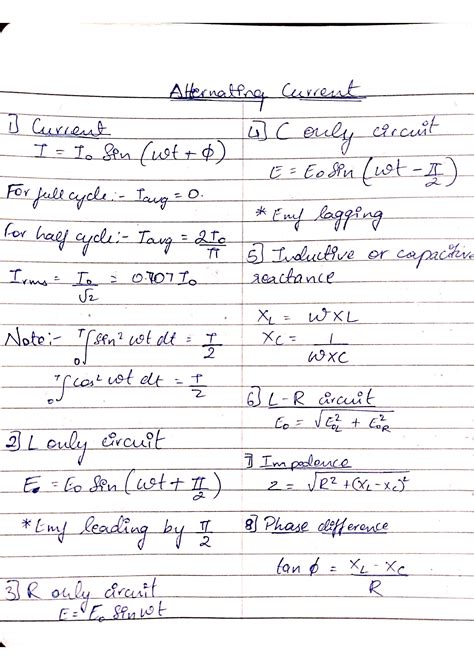 Alternating Current
1] Current
I = I₀ Sin (ωt + ϕ)
For full cycle:- Iavg = 0.
For half cycle:- Iavg = 2I₀/π
Irms = I₀/√2 = 0.707 I₀
Note:- ₀∫ᵀ sin² ωt dt = T/2
₀∫ᵀ cos² ωt dt = T/2
2] L only circuit
E₀ = E₀ Sin (ωt + π/2)
* Emf leading by π/2
3] R only circuit
E = E₀ sin ωt
4] C only circuit
E = E₀ Sin (ωt - π/2)
* Emf lagging
5] Inductive or capacitive
reactance
X_L = ω x L
X_C = 1/ω x C
6] L-R circuit
E₀ = √E²₀L + E²₀R
7] Impedence
Z = √R² + (X_L - X_C)²
8] Phase difference
tan ϕ = X_L - X_C/R